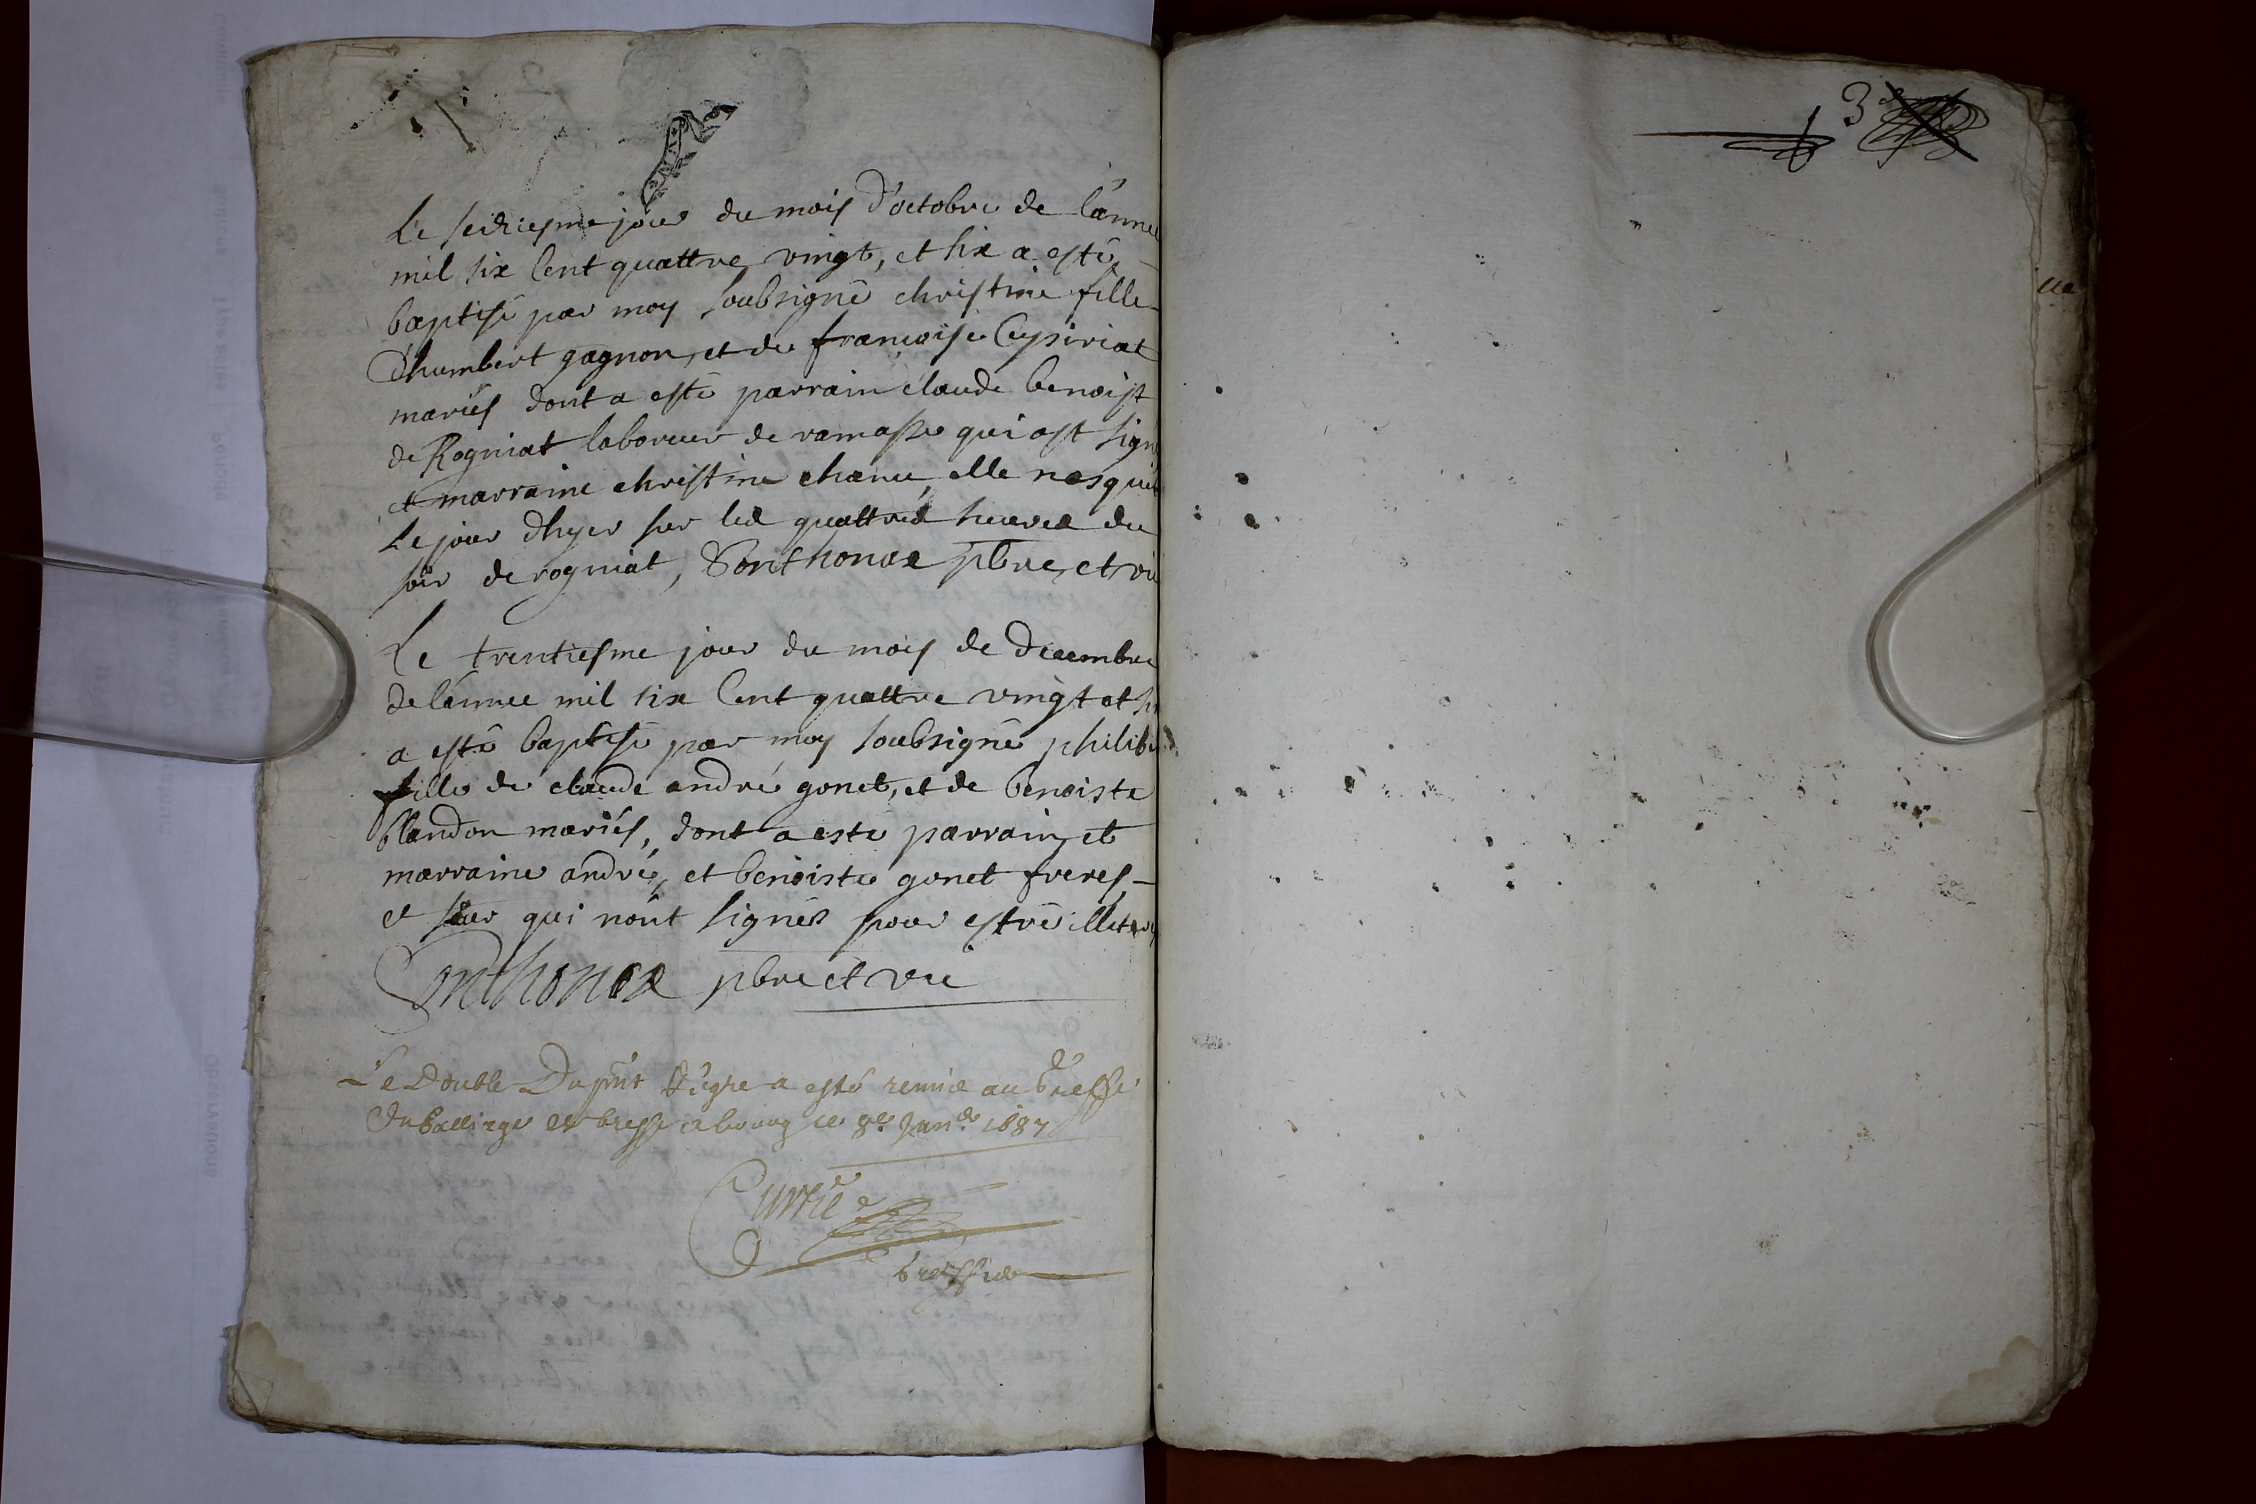 Le seiziesme jour du mois d'octobre de l'annee
mil six cent quattre vingt, et six a esté
baptisé par moy soubsigné christine fille
d'humbert gagnon, et de françoise Ceysiriat
mariés dont a esté parrain claude benoist
de Rogniat laboreur de ramasse qui ast signé
et marraine christine chanu, elle nasquit
le jour d'hyer sur les quattres heures du
soir de rogniat, Sonthonax pbre et vic
Le trentiesme jour du mois de decembre
de l'annee mil six cent quattre vingt et six
a esté baptisé par moy soubsigné philib
fille de claude andré gonet, et de benoiste
blandon mariés, dont a esté parrain et
marraine andré, et benoiste gonet freres
et seur qui n'ont signés pour estre illeteres
Sonthonax pbre et vic
Le Double Du pnt Regre a esté remis au Greffe
Du Balliage de bresse a bourg ce 8e Janer 1687
greffier
3e